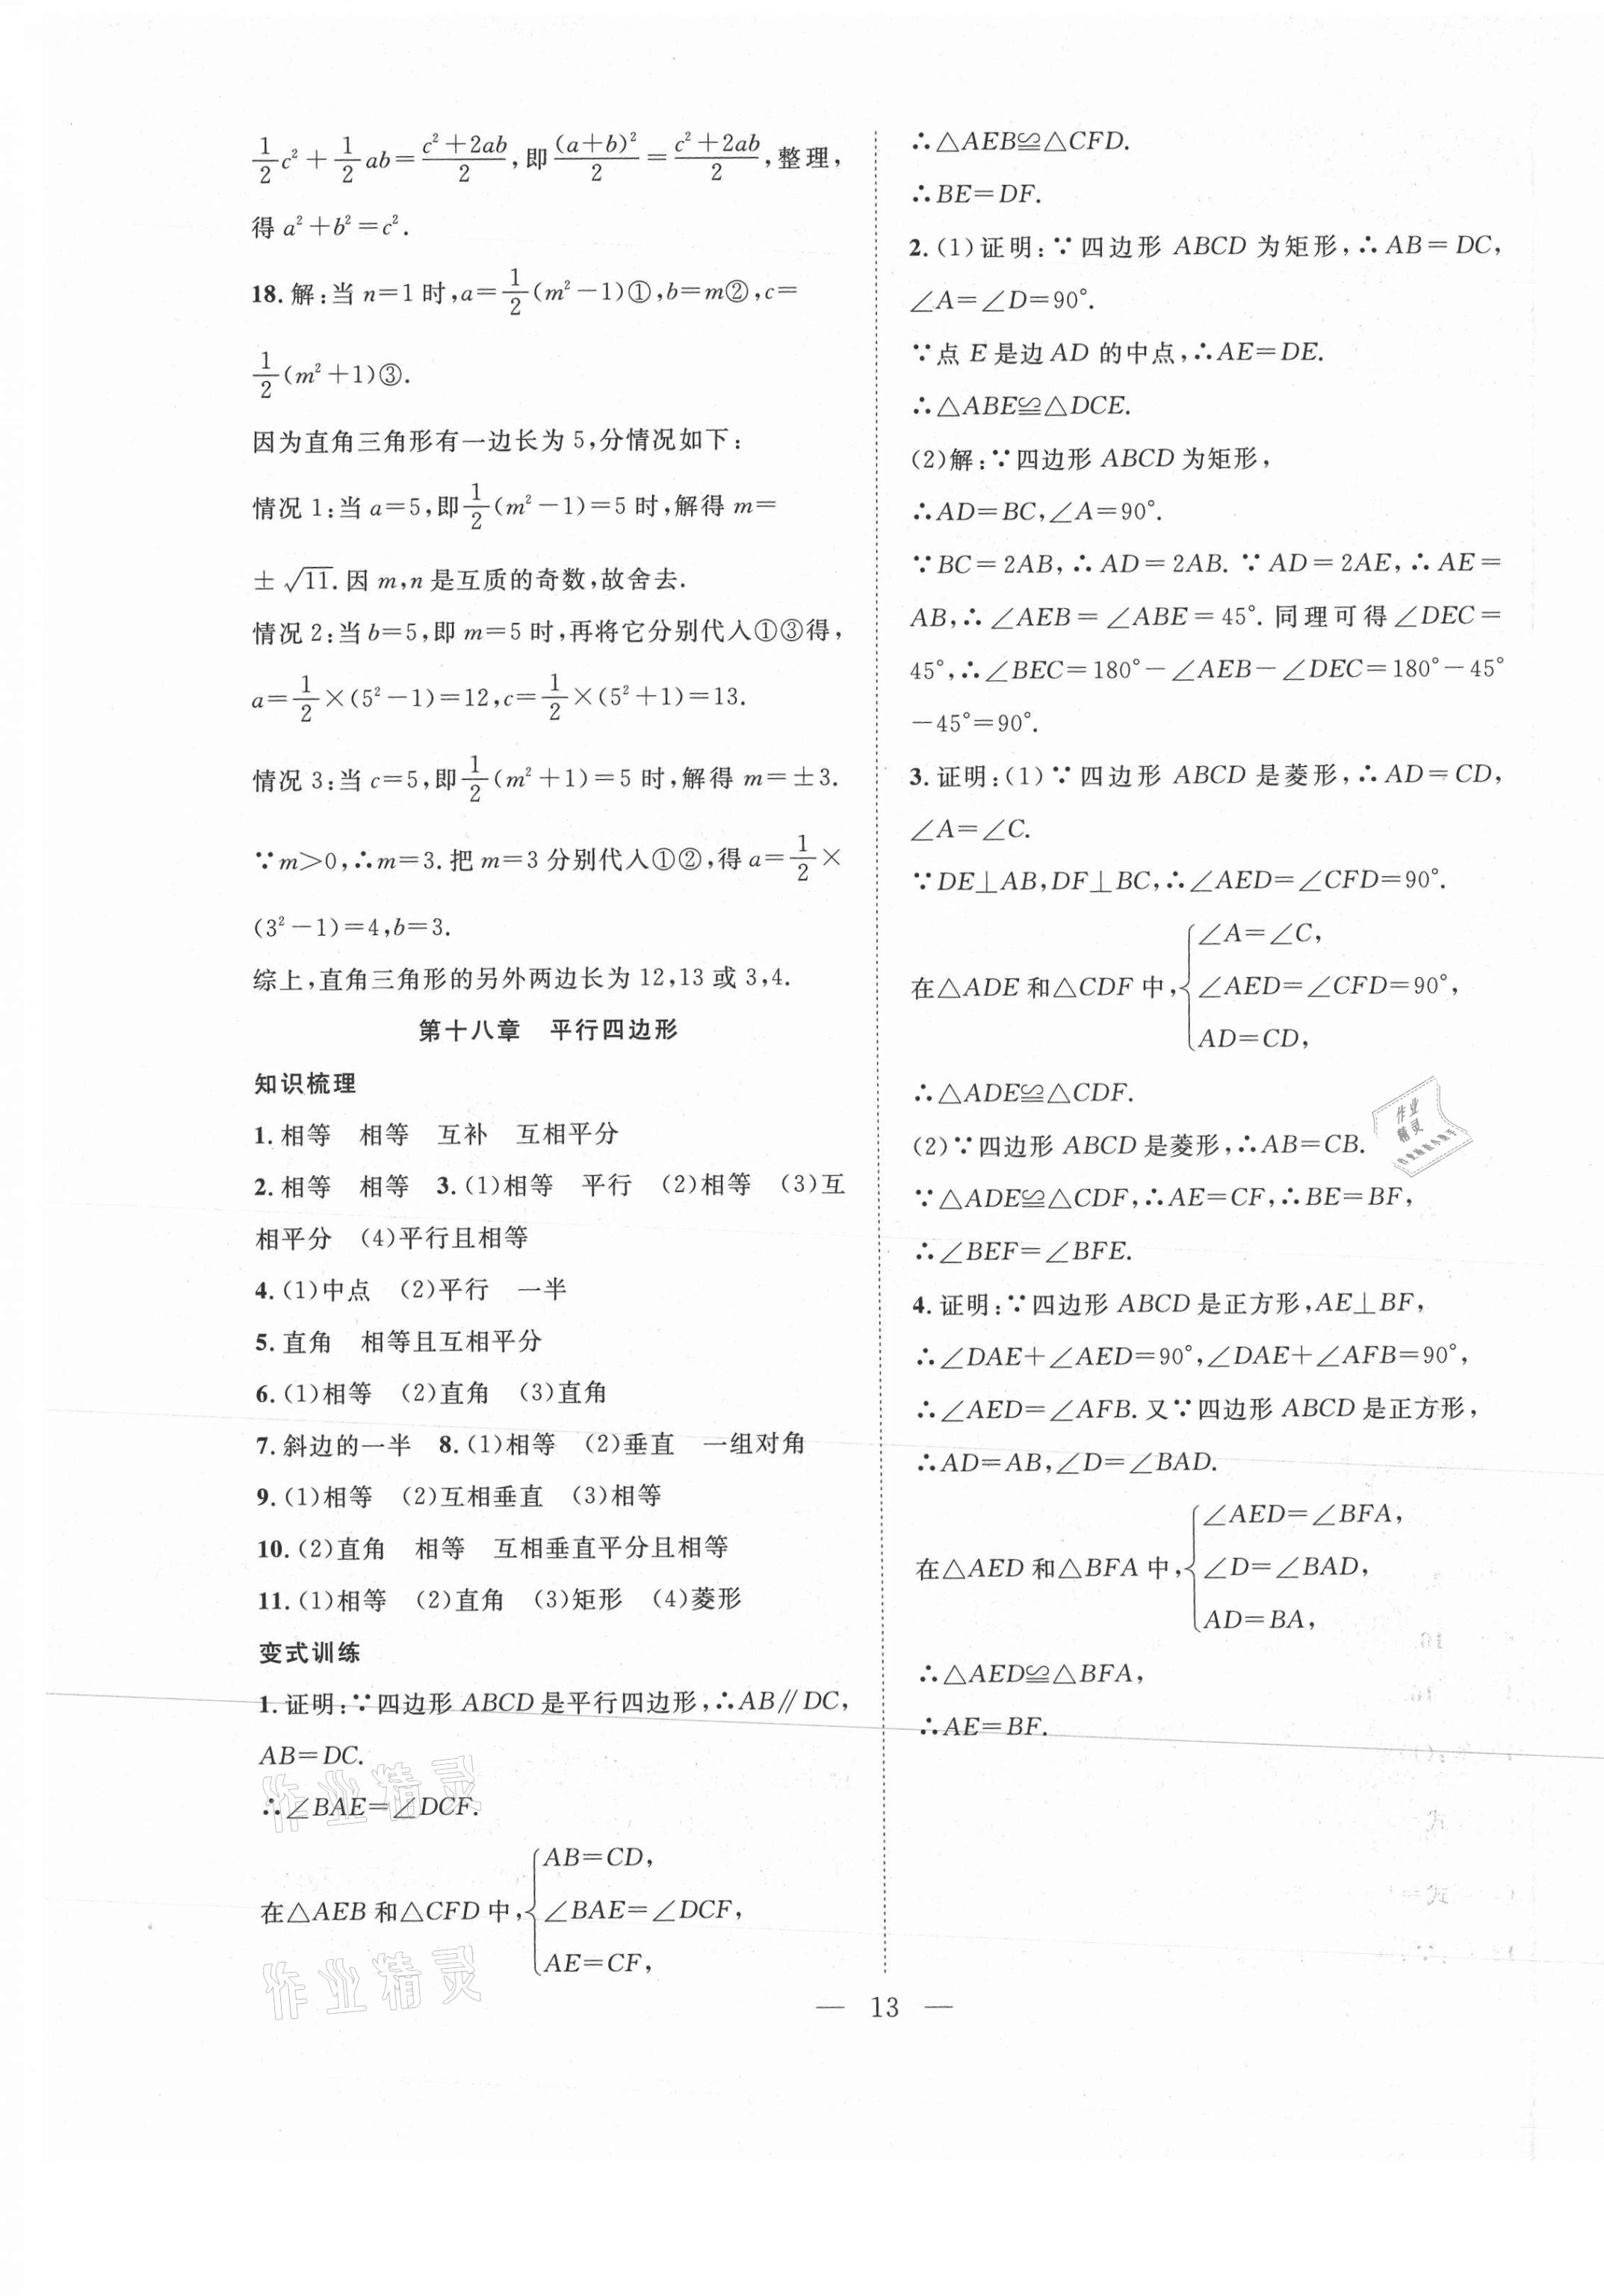 $\frac{1}{2}c^2+\frac{1}{2}ab=\frac{c^2+2ab}{2}$,即$\frac{(a+b)^2}{2}=\frac{c^2+2ab}{2}$,整理,
得 $a^2+b^2=c^2$.
18.解:当 n=1 时,a=$\frac{1}{2}$(m²-1)①,b=m②,c=
$\frac{1}{2}$(m²+1)③.
因为直角三角形有一边长为 5,分情况如下:
情况 1:当 a=5,即$\frac{1}{2}$(m²-1)=5 时,解得 m=
±$\sqrt{11}$.因 m,n 是互质的奇数,故舍去.
情况 2:当 b=5,即 m=5 时,再将它分别代入①③得,
a=$\frac{1}{2}$×(5²-1)=12,c=$\frac{1}{2}$×(5²+1)=13.
情况 3:当 c=5,即$\frac{1}{2}$(m²+1)=5 时,解得 m=±3.
∵m>0,∴m=3.把 m=3 分别代入①②,得 a=$\frac{1}{2}$×
(3²-1)=4,b=3.
综上,直角三角形的另外两边长为 12,13 或 3,4.
第十八章 平行四边形
知识梳理
1.相等 相等 互补 互相平分
2.相等 相等 3.(1)相等 平行 (2)相等 (3)互
相平分 (4)平行且相等
4.(1)中点 (2)平行 一半
5.直角 相等且互相平分
6.(1)相等 (2)直角 (3)直角
7.斜边的一半 8.(1)相等 (2)垂直 一组对角
9.(1)相等 (2)互相垂直 (3)相等
10.(2)直角 相等 互相垂直平分且相等
11.(1)相等 (2)直角 (3)矩形 (4)菱形
变式训练
1.证明:∵四边形 ABCD 是平行四边形,∴AB∥DC,
AB=DC.
∴∠BAE=∠DCF.
在△AEB 和△CFD 中,
AB=CD,
∠BAE=∠DCF,
AE=CF,
∴△AEB≌△CFD.
∴BE=DF.
2.(1)证明:∵四边形 ABCD 为矩形,∴AB=DC,
∠A=∠D=90°.
∵点 E 是边 AD 的中点,∴AE=DE.
∴△ABE≌△DCE.
(2)解:∵四边形 ABCD 为矩形,
∴AD=BC,∠A=90°.
∵BC=2AB,∴AD=2AB.∵AD=2AE,∴AE=
AB,∴∠AEB=∠ABE=45°.同理可得∠DEC=
45°,∴∠BEC=180°-∠AEB-∠DEC=180°-45°
-45°=90°.
3.证明:(1)∵四边形 ABCD 是菱形,∴AD=CD,
∠A=∠C.
∵DE⊥AB,DF⊥BC,∴∠AED=∠CFD=90°.
在△ADE 和△CDF 中,
∠A=∠C,
∠AED=∠CFD=90°,
AD=CD,
∴△ADE≌△CDF.
(2)∵四边形 ABCD 是菱形,∴AB=CB.
∵△ADE≌△CDF,∴AE=CF,∴BE=BF,
∴∠BEF=∠BFE.
4.证明:∵四边形 ABCD 是正方形,AE⊥BF,
∴∠DAE+∠AED=90°,∠DAE+∠AFB=90°,
∴∠AED=∠AFB.又∵四边形 ABCD 是正方形,
∴AD=AB,∠D=∠BAD.
在△AED 和△BFA 中,
∠AED=∠BFA,
∠D=∠BAD,
AD=BA,
∴△AED≌△BFA,
∴AE=BF.
作业精灵
作业精灵
作业
精灵
— 13 —